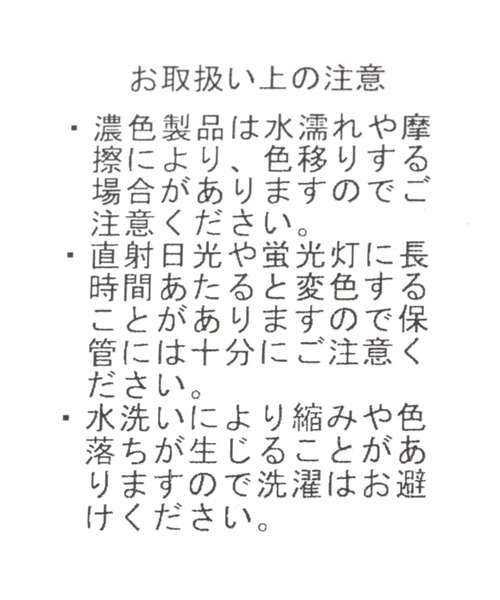 お取扱い上の注意
・濃色製品は水濡れや摩
擦により、色移りする
場合がありますのでご
注意ください。
・直射日光や蛍光灯に長
時間あたると変色する
ことがありますので保
管には十分にご注意く
ださい。
・水洗いにより縮みや色
落ちが生じることがあ
りますので洗濯はお避
けください。